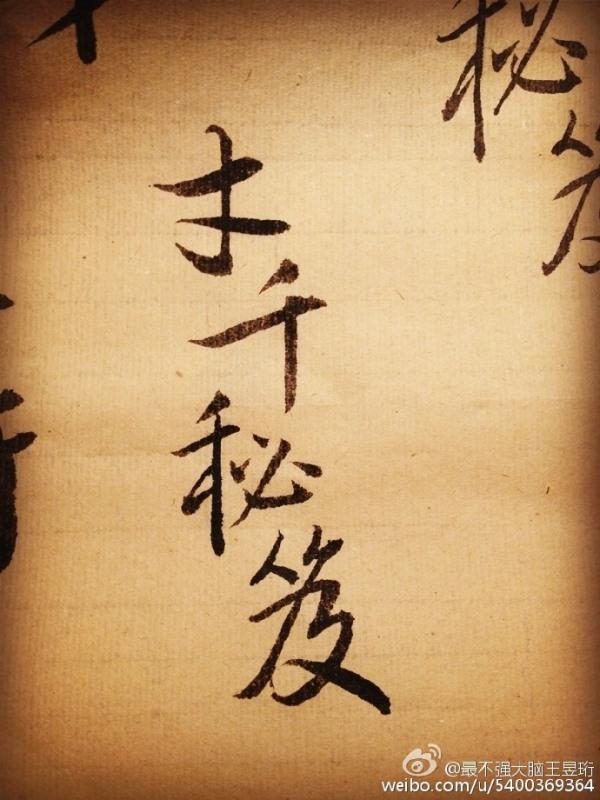 秘笈
老千秘笈
@最不强大脑王昱珩
weibo.com/u/5400369364